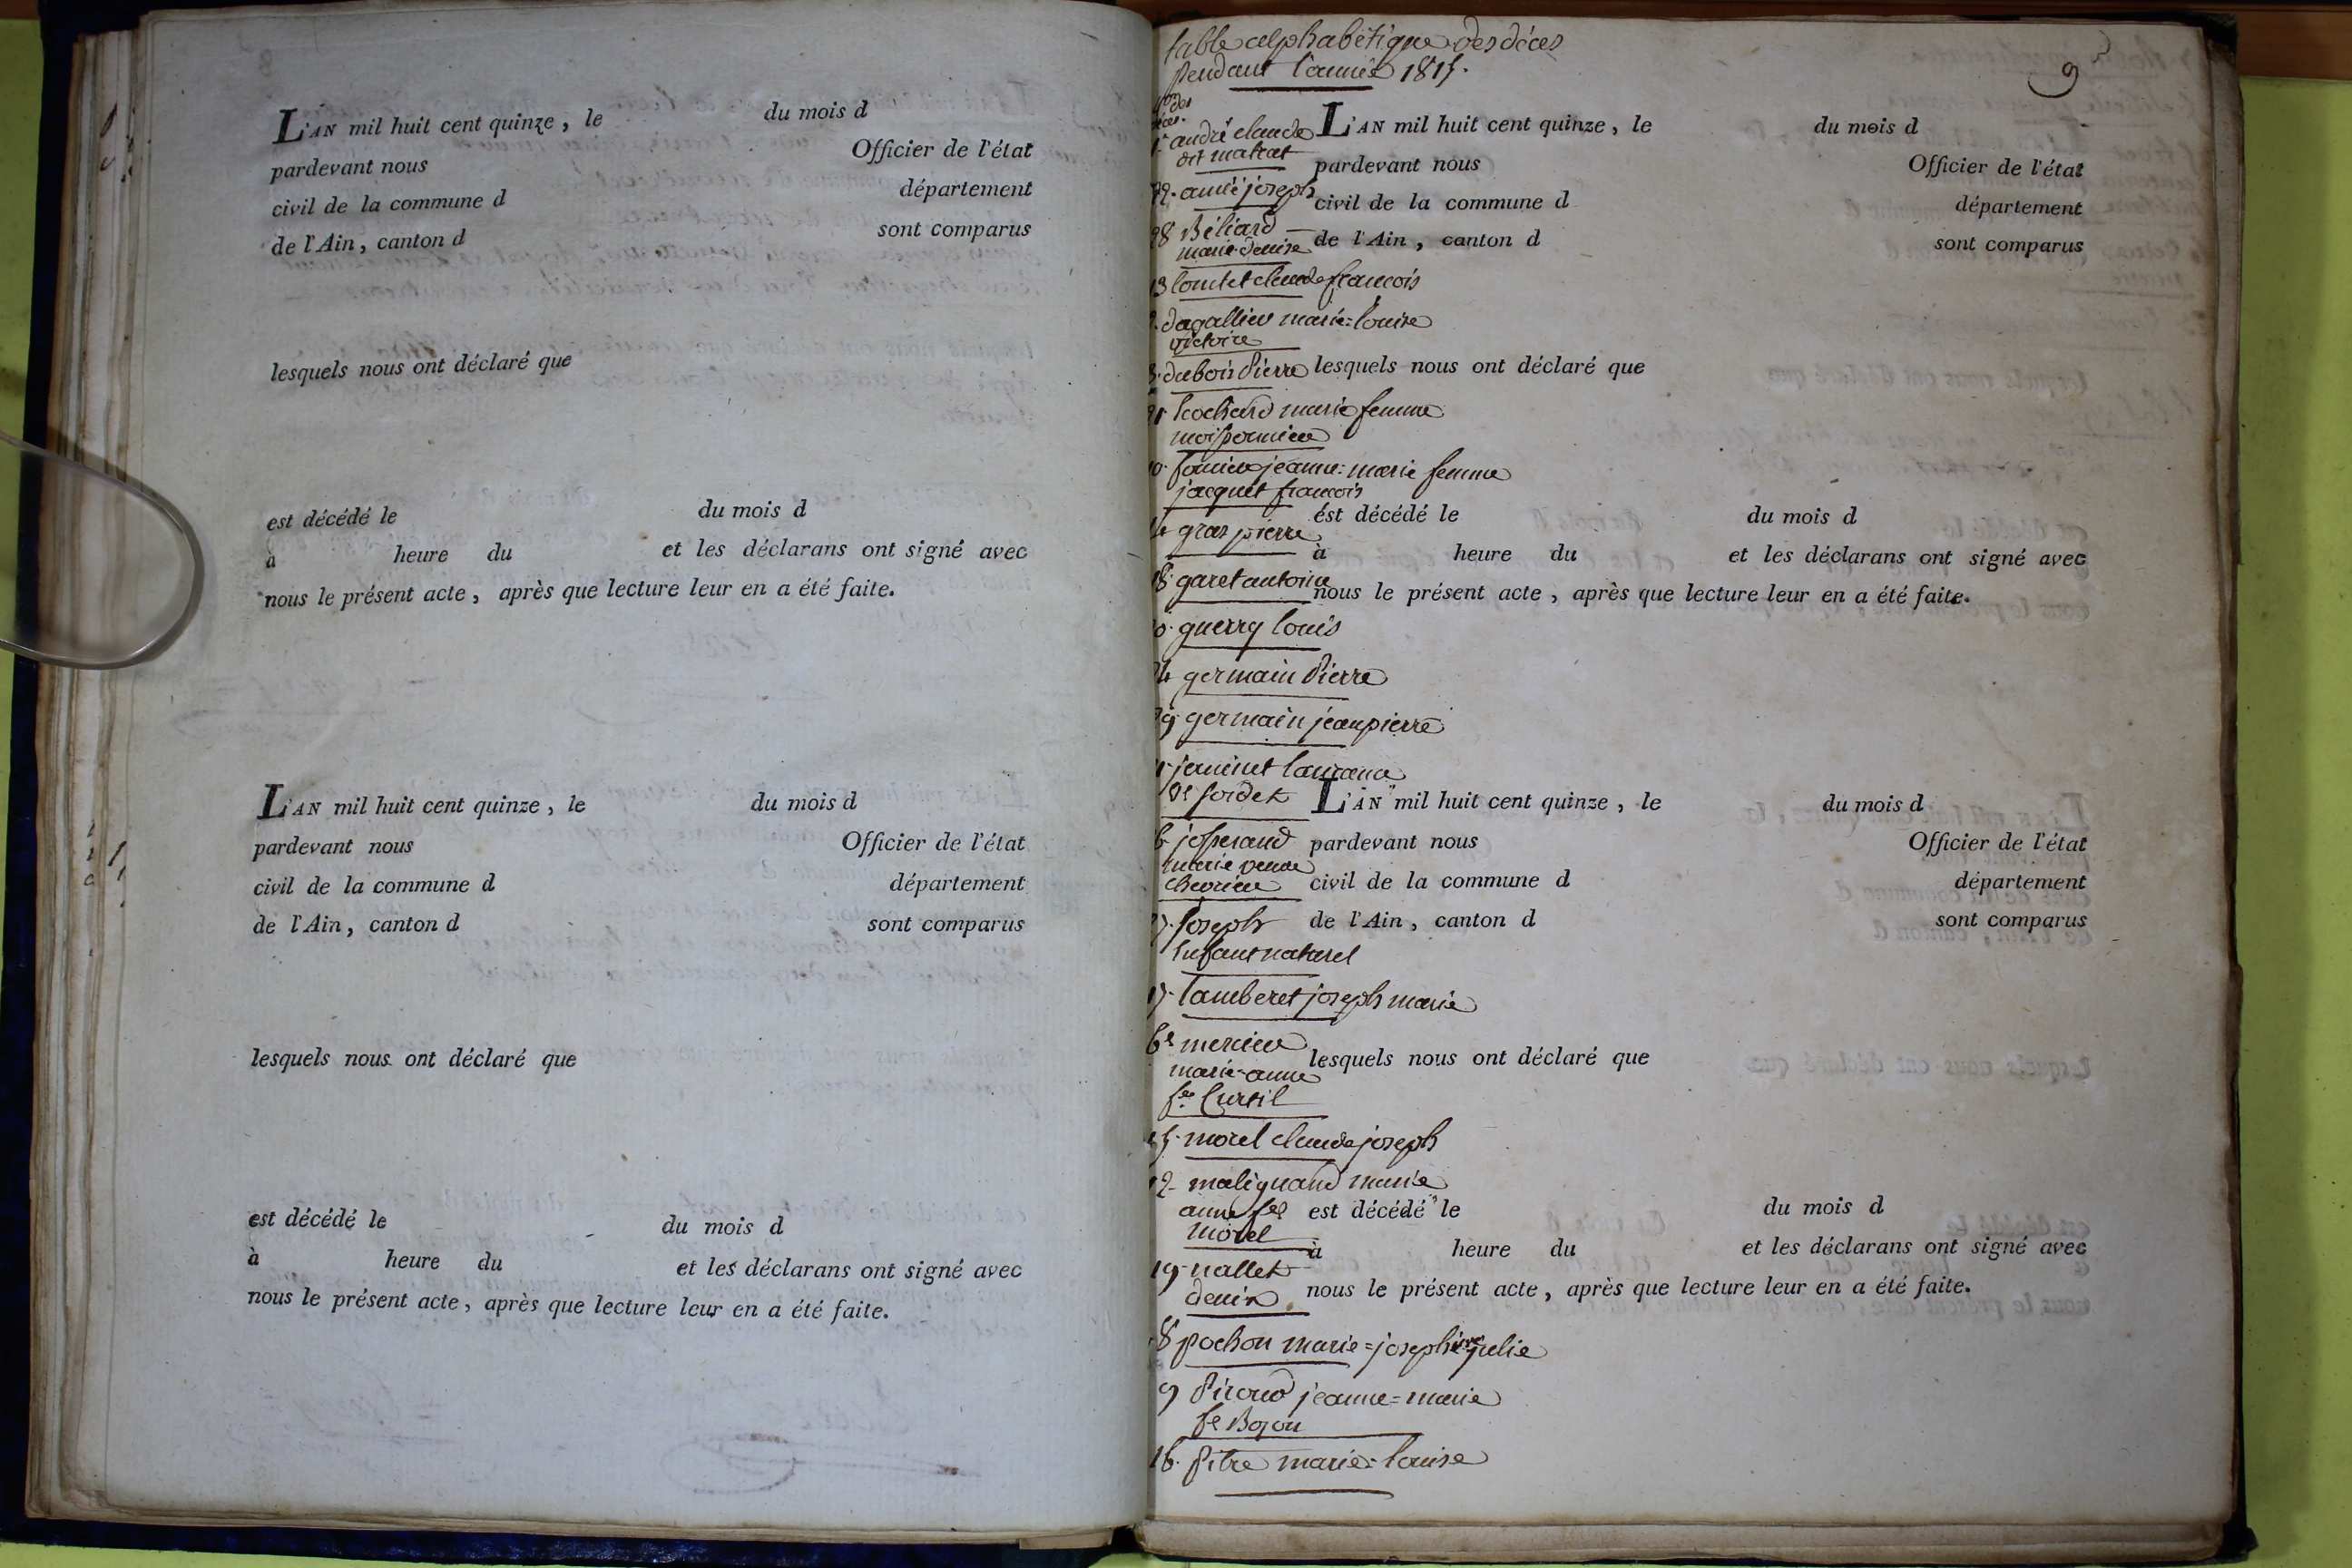 L'AN mil huit cent quinze, le du mois d
pardevant nous Officier de l'état
civil de la commune d département
de l'Ain, canton d sont comparus
lesquels nous ont déclaré que
est décédé le du mois d
à heure du et les déclarans ont signé avec
nous le présent acte, après que lecture leur en a été faite.
L'AN mil huit cent quinze, le du mois d
pardevant nous Officier de l'état
civil de la commune d département
de l'Ain, canton d sont comparus
lesquels nous ont déclaré que
est décédé le du mois d
à heure du et les déclarans ont signé avec
nous le présent acte, après que lecture leur en a été faite.
table alphabétique des décès
pendant l'année 1815.
9
andré claude
dit matrat
L'AN mil huit cent quinze, le du mois d
pardevant nous Officier de l'état
22. amié joseph
civil de la commune d département
28 Béliard
marie denise
de l'Ain, canton d sont comparus
13 Comtet claude françois
dagallier marie=louise
victoire
3. dubois Pierre
lesquels nous ont déclaré que
marie femme
jeanne=marie femme
jacquet francois
est décédé le du mois d
gras pierre
à heure du et les déclarans ont signé avec
garet antoine
nous le présent acte, après que lecture leur en a été faite.
guerry louis
germain Pierre
germain jean pierre
L'AN mil huit cent quinze, le du mois d
josserand
pardevant nous Officier de l'état
marie veuve
civil de la commune d département
joseph
de l'Ain, canton d sont comparus
Enfant naturel
17. Lamberet joseph marie
mercier
marie=anne
fe Curtil
lesquels nous ont déclaré que
morel claude joseph
12- malignand marie
anne fe
morel
est décédé le du mois d
à heure du et les déclarans ont signé avec
19- nallet
denis
nous le présent acte, après que lecture leur en a été faite.
8 pochon marie=josephine julie
9 Piroud jeanne=marie
fe Bojon
16. Pitre marie=louise